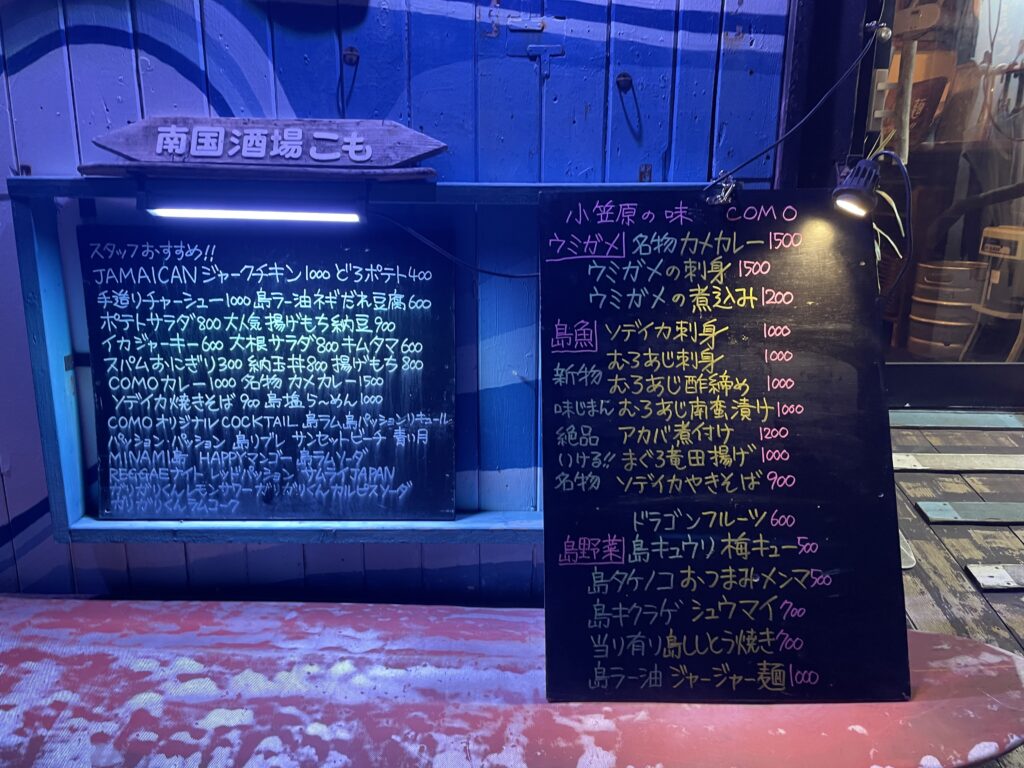 南国酒場こも
スタッフおすすめ!!
JAMAICAN ジャークチキン 1000 どろポテト 400
手造りチャーシュー 1000 島ラー油ネギだれ豆腐 600
ポテトサラダ 800 大人気 揚げもち納豆 900
イカジャーキー 600 大根サラダ 800 キムタマ 600
スパムおにぎり 300 納玉丼 800 揚げもち 800
COMOカレー 1000 名物 カメカレー 1500
ソデイカ焼きそば 900 島塩ら〜めん 1000
COMOオリジナル COCKTAIL 島ラム 島パッションリキュール
パッション・パッション 島リブレ サンセットビーチ 青い月
MINAMI島 HAPPYマンゴー 島ラムソーダ
REGGAEナイト レッドパッション サムライJAPAN
ガリガリくんレモンサワー ガリガリくんカルピスソーダ
ガリガリくんラムコーク
小笠原の味 COMO
ウミガメ 名物カメカレー 1500
ウミガメの刺身 1500
ウミガメの煮込み 1200
島魚 ソデイカ刺身 1000
むろあじ刺身 1000
新物 むろあじ酢締め 1000
味じまん むろあじ南蛮漬け 1000
絶品 アカバ煮付け 1200
いける!! まぐろ竜田揚げ 1000
名物 ソデイカやきそば 900
ドラゴンフルーツ 600
島野菜 島キュウリ 梅キュー 500
島タケノコ おつまみメンマ 500
島キクラゲ シュウマイ 700
当り有り島ししとう焼き 700
島ラー油 ジャージャー麺 1000